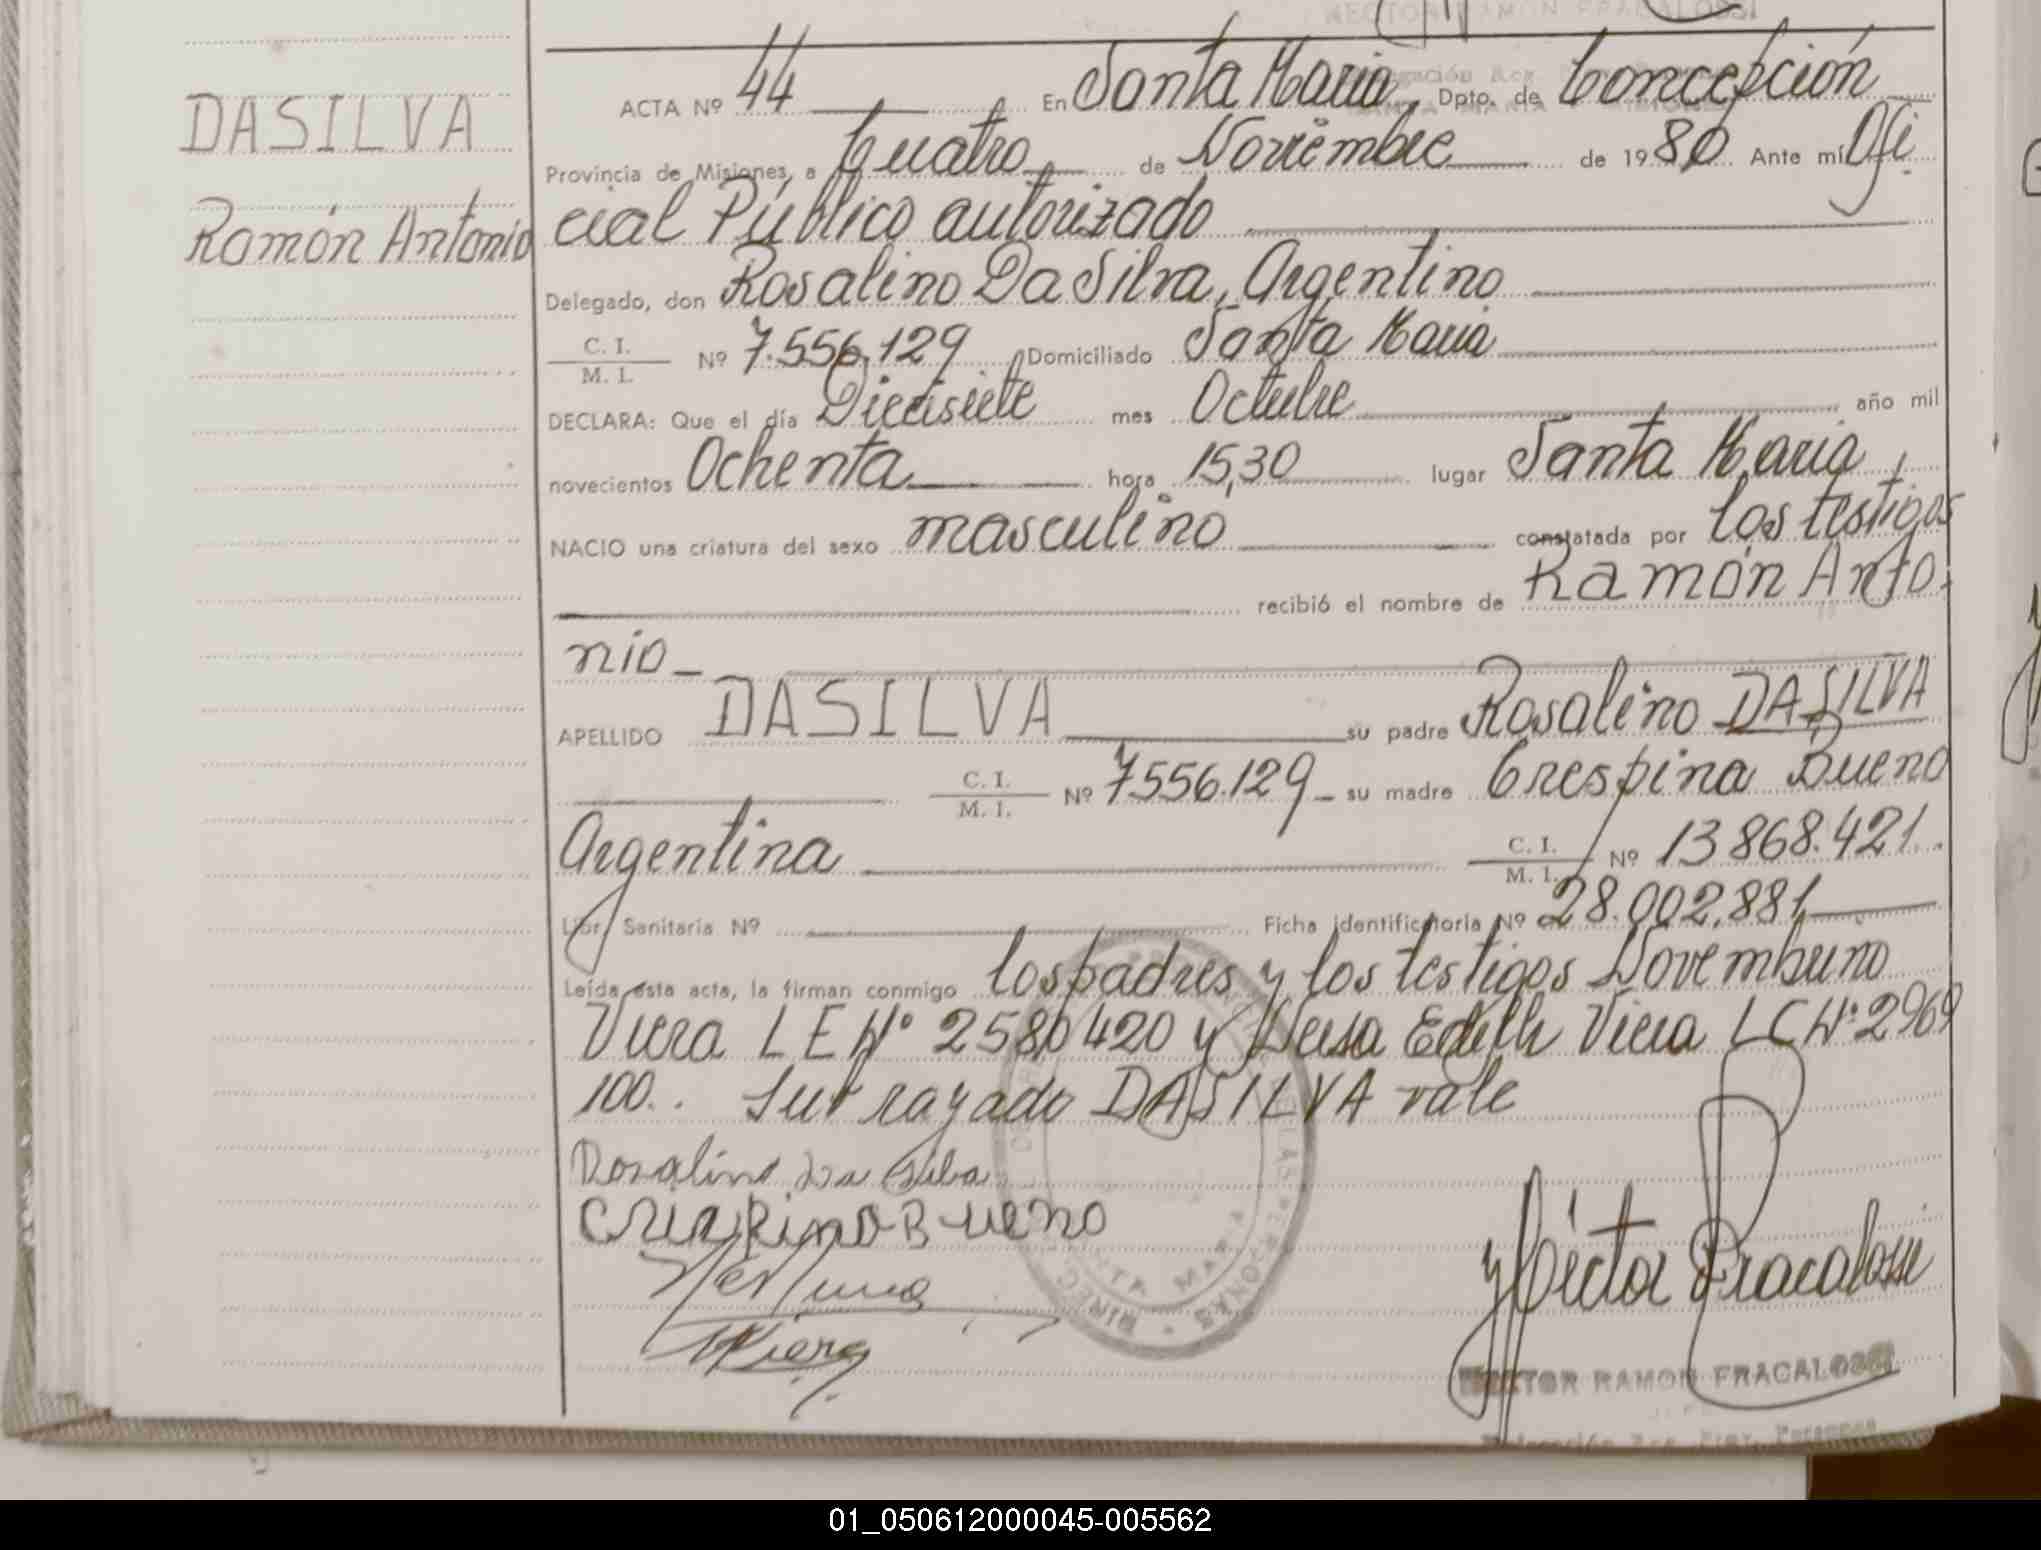 DASILVA
Ramón Antonio
HECTOR RAMON FRACALOSSI
ACTA Nº 44 En Santa Maria, Dpto. de Concepción
Provincia de Misiones, a Cuatro de Noviembre de 1980 Ante mí Ofi
cial Público autorizado
Delegado, don Rosalino Da Silva, Argentino
C. I. / M. I. Nº 7.556.129 Domiciliado Santa Maria
DECLARA: Que el día Diecisiete mes Octubre año mil
novecientos Ochenta hora 15,30 lugar Santa Maria
NACIO una criatura del sexo masculino constatada por los testigos
recibió el nombre de Ramón Anto-
nio
APELLIDO DASILVA su padre Rosalino DASILVA
C. I. / M. I. Nº 7556.129 su madre Crespina Bueno
Argentina C. I. / M. I. Nº 13868.421
Libr. Sanitaria Nº Ficha identificatoria Nº 28.002.881
Leída esta acta, la firman conmigo los padres y los testigos Novembrino
Viera LE Nº 2580420 y Edith Viera LC Nº 2969
100.. Subrayado DASILVA vale
Rosalino Da Silba
Bueno
Viera
Héctor Fracalossi
SANTA MARIA
HECTOR RAMON FRACALOSSI
01_050612000045-005562